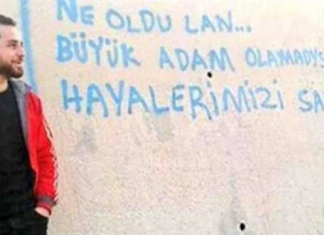 NE OLDU LAN...
BÜYÜK ADAM OLAMADYS
HAYALERIMIZI SA